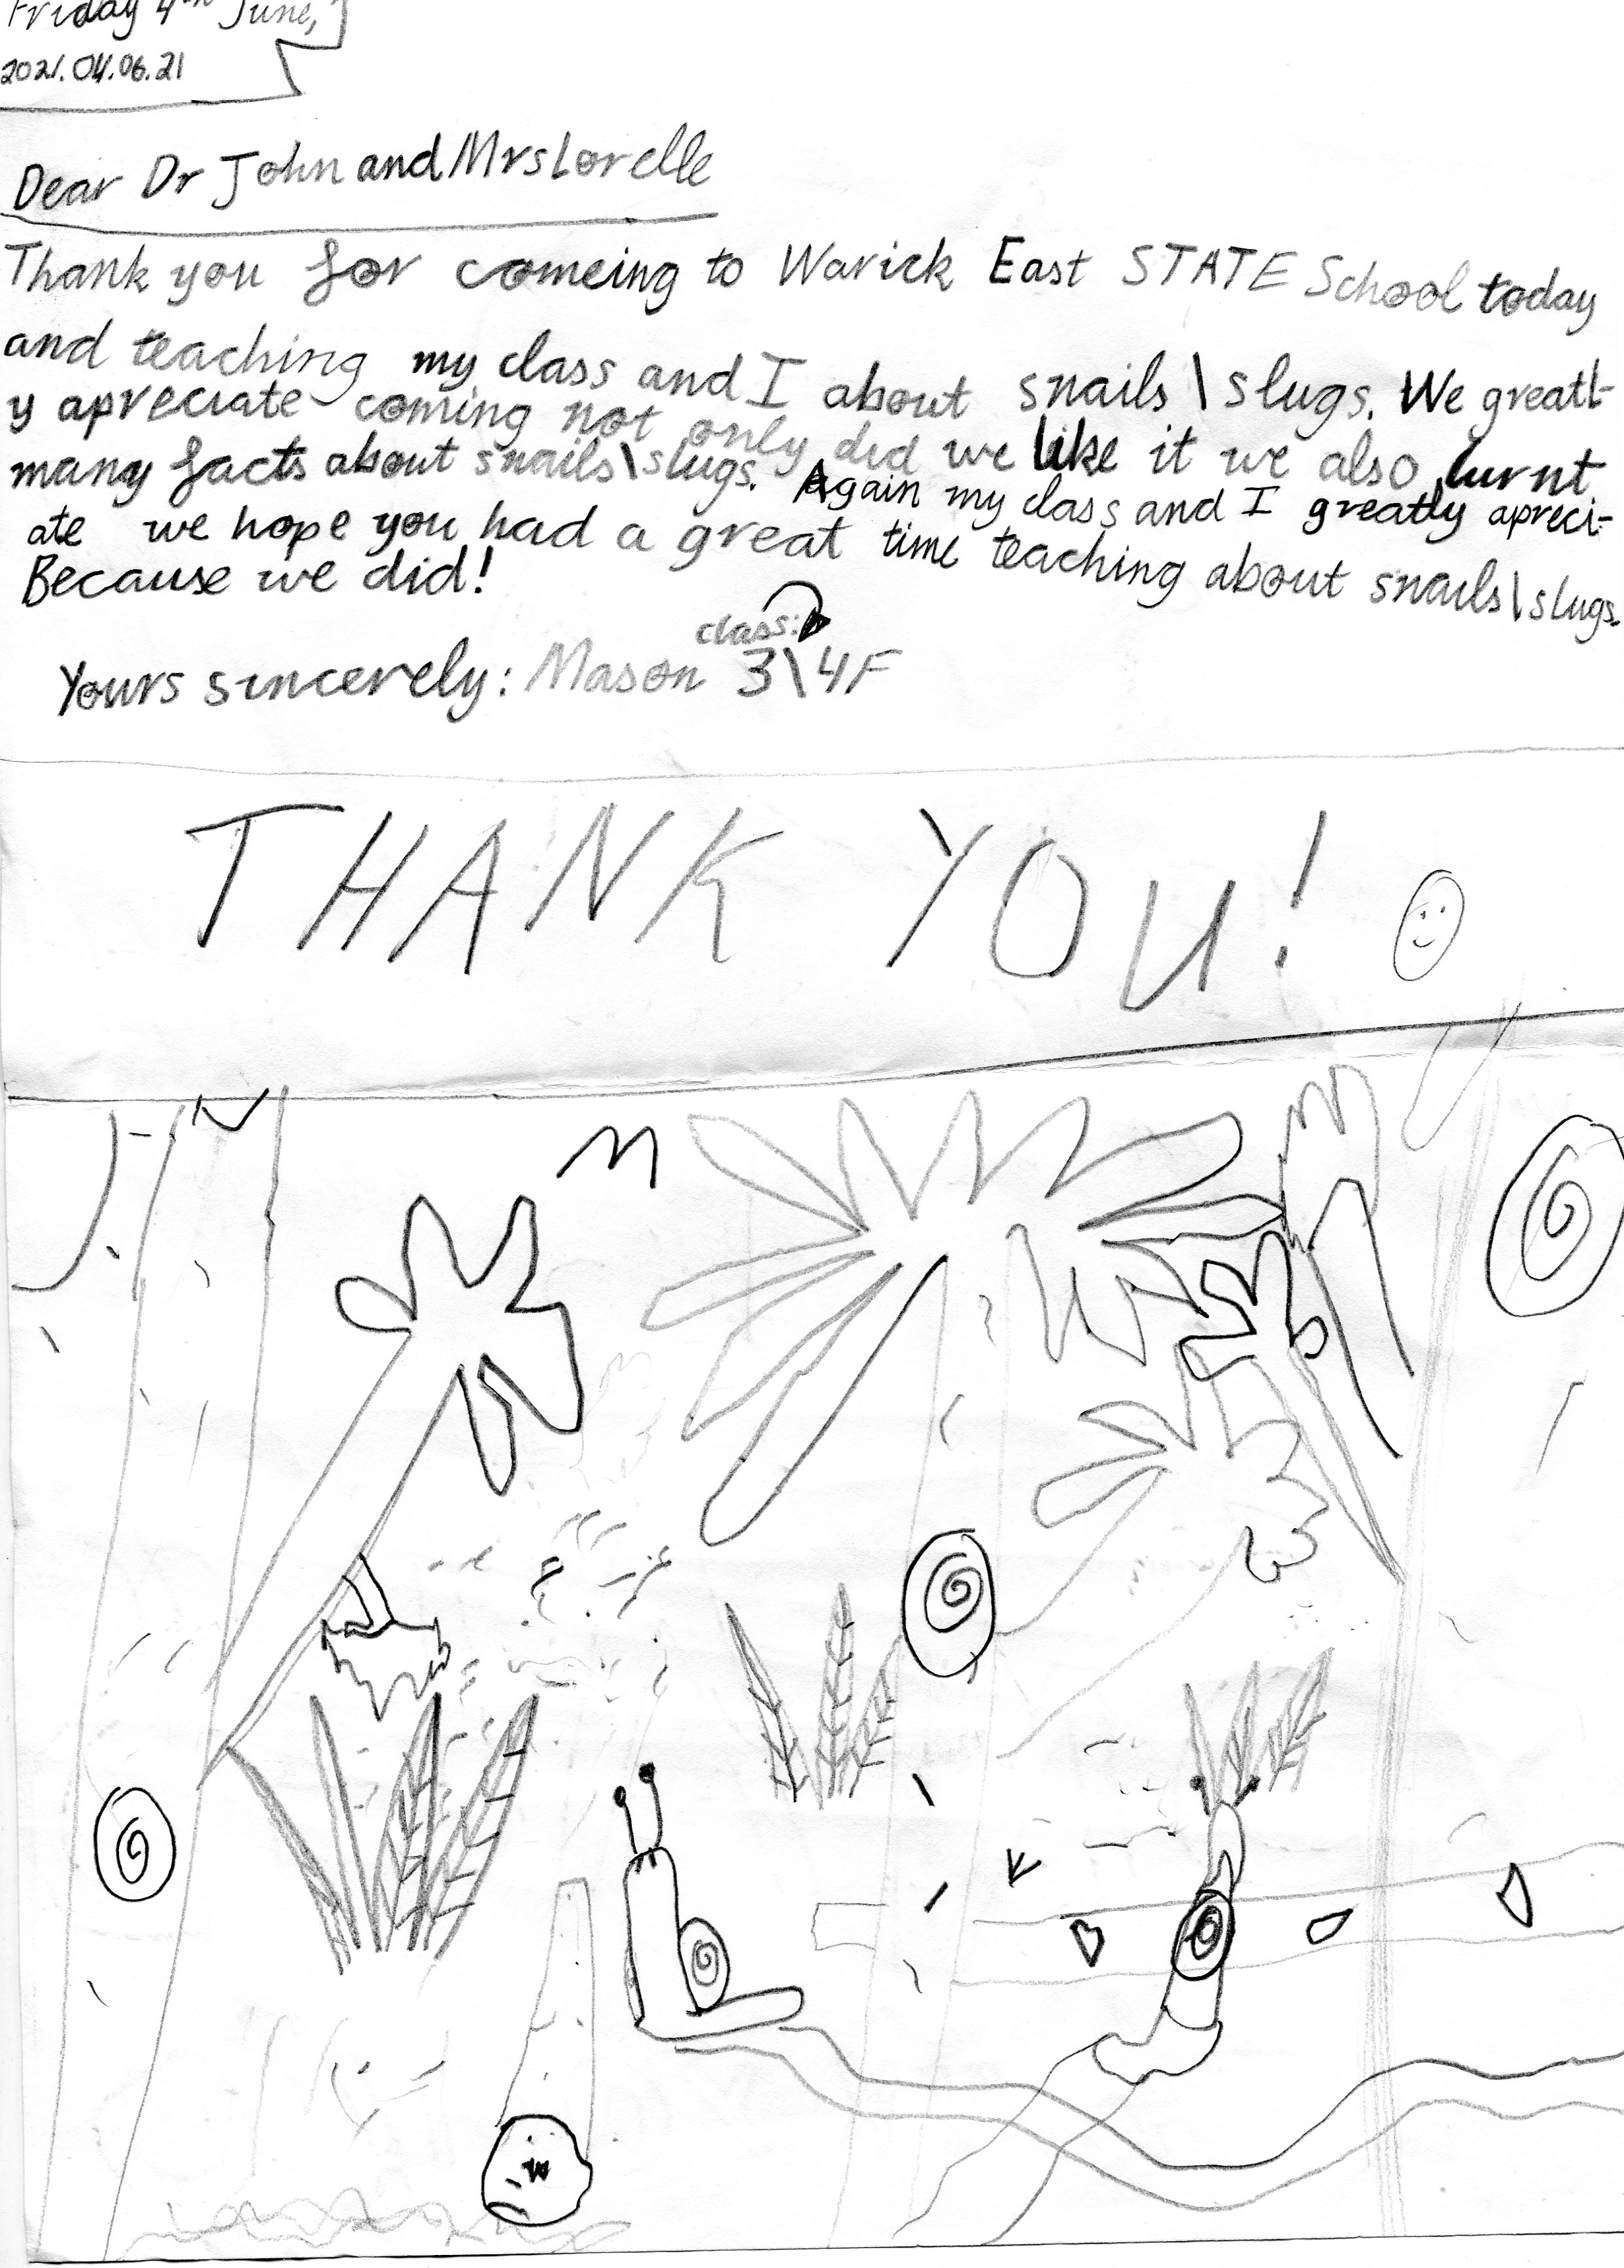 Friday 4th June,
2021.04.06.21
Dear Dr John and Mrs Lorelle
Thank you for comeing to Warick East STATE School today
and teaching my class and I about snails\slugs. We greatl-
y apreciate coming not only did we like it we also lurnt
many facts about snails\slugs. Again my class and I greatly apreci-
ate we hope you had a great time teaching about snails\slugs.
Because we did!
class:
Yours sincerely: Mason 3\4F
THANK YOU!